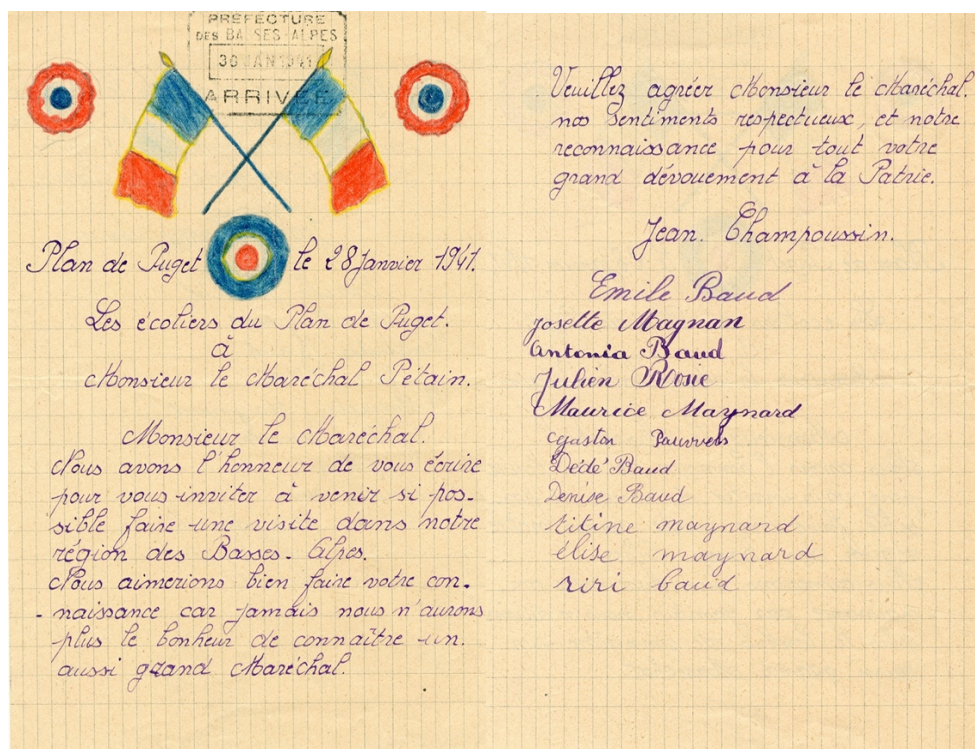 PRÉFECTURE
DES BASSES-ALPES
30 JAN 1941
ARRIVÉE
Plan de Puget le 28 Janvier 1941.
Les écoliers du Plan de Puget.
à
Monsieur le Maréchal Pétain.
Monsieur le Maréchal.
Nous avons l'honneur de vous écrire
pour vous inviter à venir si pos-
sible faire une visite dans notre
région des Basses-Alpes.
Nous aimerions bien faire votre con-
- naissance car jamais nous n'aurons
plus le bonheur de connaître un
aussi grand Maréchal.
Veuillez agréer Monsieur le Maréchal.
nos sentiments respectueux, et notre
reconnaissance pour tout votre
grand dévouement à la Patrie.
Jean. Champoussin.
Emile Baud
Josette Magnan
Antonia Baud
Julien Rosie
Maurice Maynard
Gaston Pauwels
Dédé Baud
Denise Baud
titine maynard
élise maynard
riri baud